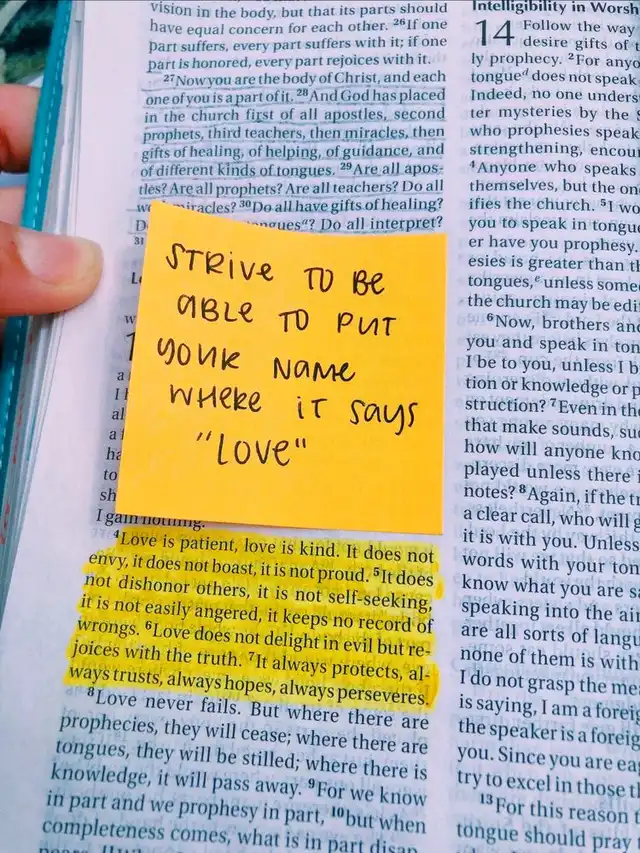 vision in the body, but that its parts should
have equal concern for each other. 26If one
part suffers, every part suffers with it; if one
part is honored, every part rejoices with it.
27Now you are the body of Christ, and each
one of you is a part of it. 28And God has placed
in the church first of all apostles, second
prophets, third teachers, then miracles, then
gifts of healing, of helping, of guidance, and
of different kinds of tongues. 29Are all apos-
tles? Are all prophets? Are all teachers? Do all
miracles? 30Do all have gifts of healing?
Do all interpret?
31
STRIVE TO BE
ABLE TO PUT
YOUR NAME
WHERE IT SAYS
"LOVE"
I gain nothing.
4Love is patient, love is kind. It does not
envy, it does not boast, it is not proud. 5It does
not dishonor others, it is not self-seeking,
it is not easily angered, it keeps no record of
wrongs. 6Love does not delight in evil but re-
joices with the truth. 7It always protects, al-
ways trusts, always hopes, always perseveres.
8Love never fails. But where there are
prophecies, they will cease; where there are
tongues, they will be stilled; where there is
knowledge, it will pass away. 9For we know
in part and we prophesy in part, 10but when
completeness comes, what is in part
Intelligibility in
14 Follow the way
desire gifts of
ly prophecy. 2For
tongued does not speak
Indeed, no one
ter mysteries by the
who prophesies
strengthening,
4Anyone who speaks
themselves, but the
ifies the church. 5I
you to speak in
er have you prophesy.
esies is greater than
tongues,e unless
the church may be
6Now, brothers
you and speak in
I be to you, unless I
tion or knowledge or
struction? 7Even in
that make sounds,
how will anyone
played unless there
notes? 8Again, if the
a clear call, who will
it is with you. Unless
words with your
know what you
speaking into the
are all sorts of
none of them is
I do not grasp the
is saying, I am a
the speaker is a
you. Since you are
try to excel in those
13For this reason
tongue should pray